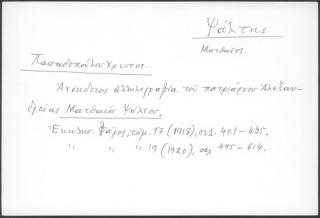 Ψάλτης
Ματθαῖος.
Παπαδοπούλου Χρυσοστ.
Ἀνέκδοτος ἀλληλογραφία τοῦ πατριάρχου Ἀλεξαν-
δρείας Ματθαίου Ψάλτου.
Ἐκκλησ. Φάρος, τόμ. 17 (1918), σελ. 401-435,
" " " 19 (1920), σελ. 495-614.